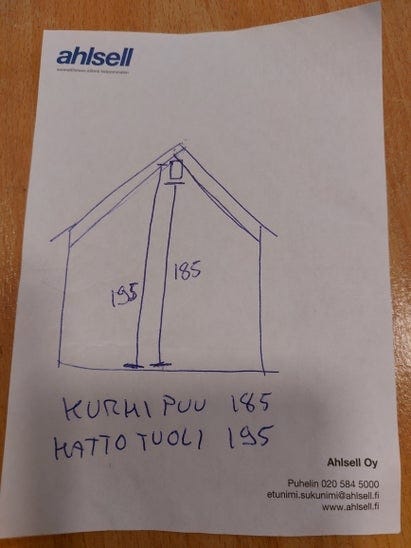 ahlsell
195
185
KURHI PUU 185
KATTO TUOLI 195
Ahlsell Oy
Puhelin 020 584 5000
etunimi.sukunimi@ahlsell.fi
www.ahlsell.fi